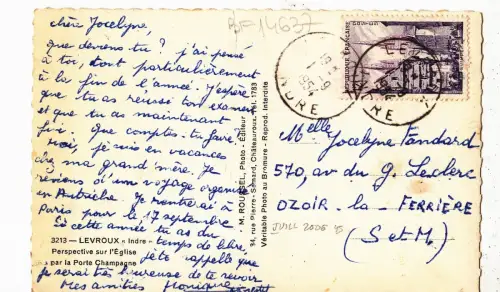 chère Jocelyne,
que deviens tu? j'ai pensé
à toi, tout particulièrement
à la fin de l'année. J'espère
que tu as réussi ton examen
et que tu as maintenant
fini. Que comptes-tu faire?
Moi, je suis en vacances
chez ma grand'mère. Je
reviens d'un voyage organisé
en Autriche. Je rentrerai à
Paris pour le 17 septembre.
Si cette année tu as du
temps de libre,
jête appelle que
je serai très heureuse de te revoir
Mes amitiés Monique
3213 — LEVROUX « Indre »
Perspective sur l'Église
par la Porte Champagne
M. ROUSSEL, Photo - Éditeur
34, rue Pierre-Semard, Châteauroux, Tél. 1783
Véritable Photo au Bromure - Reprod. Interdite
BF 14637
INDRE
INDRE
POSTES
Melle Jocelyne Fandard
570, av. du G. Leclerc
OZOIR-la-FERRIÈRE
(S et M.)